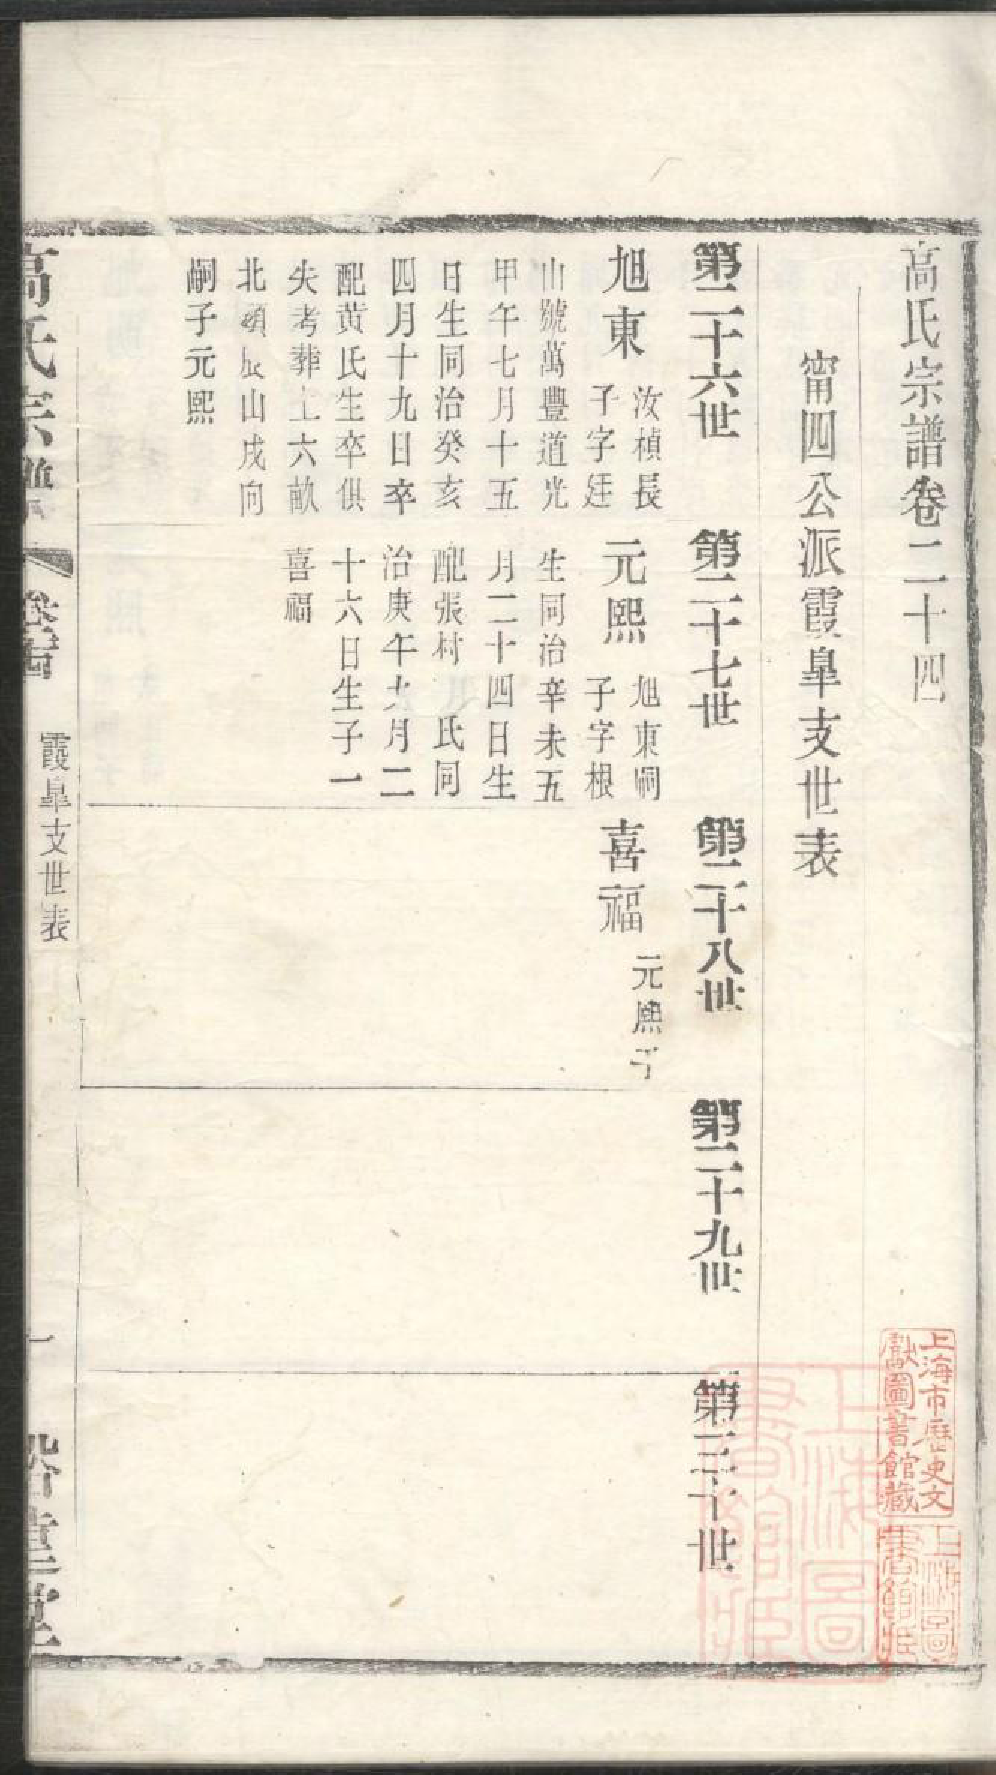 高氏宗譜卷二十四
甯四公派霞阜支世表
第二十六世
旭東
汝楨長
子字廷
山號萬豐道光
甲午七月十五
日生同治癸亥
四月十九日卒
配黃氏生卒俱
失考葬上六畝
北頭辰山戌向
嗣子元熙
第二十七世
元熙
旭東嗣
子字根
生同治辛未五
月二十四日生
配張村 氏同
治庚午 月二
十六日生子一
喜福
第二十八世
喜福
元熙子
第二十九世
第三十世
高氏宗譜
卷二十四
霞阜支世表
一
上海市歷史文
獻圖書館藏
上海圖
書館藏
上海圖
書館藏